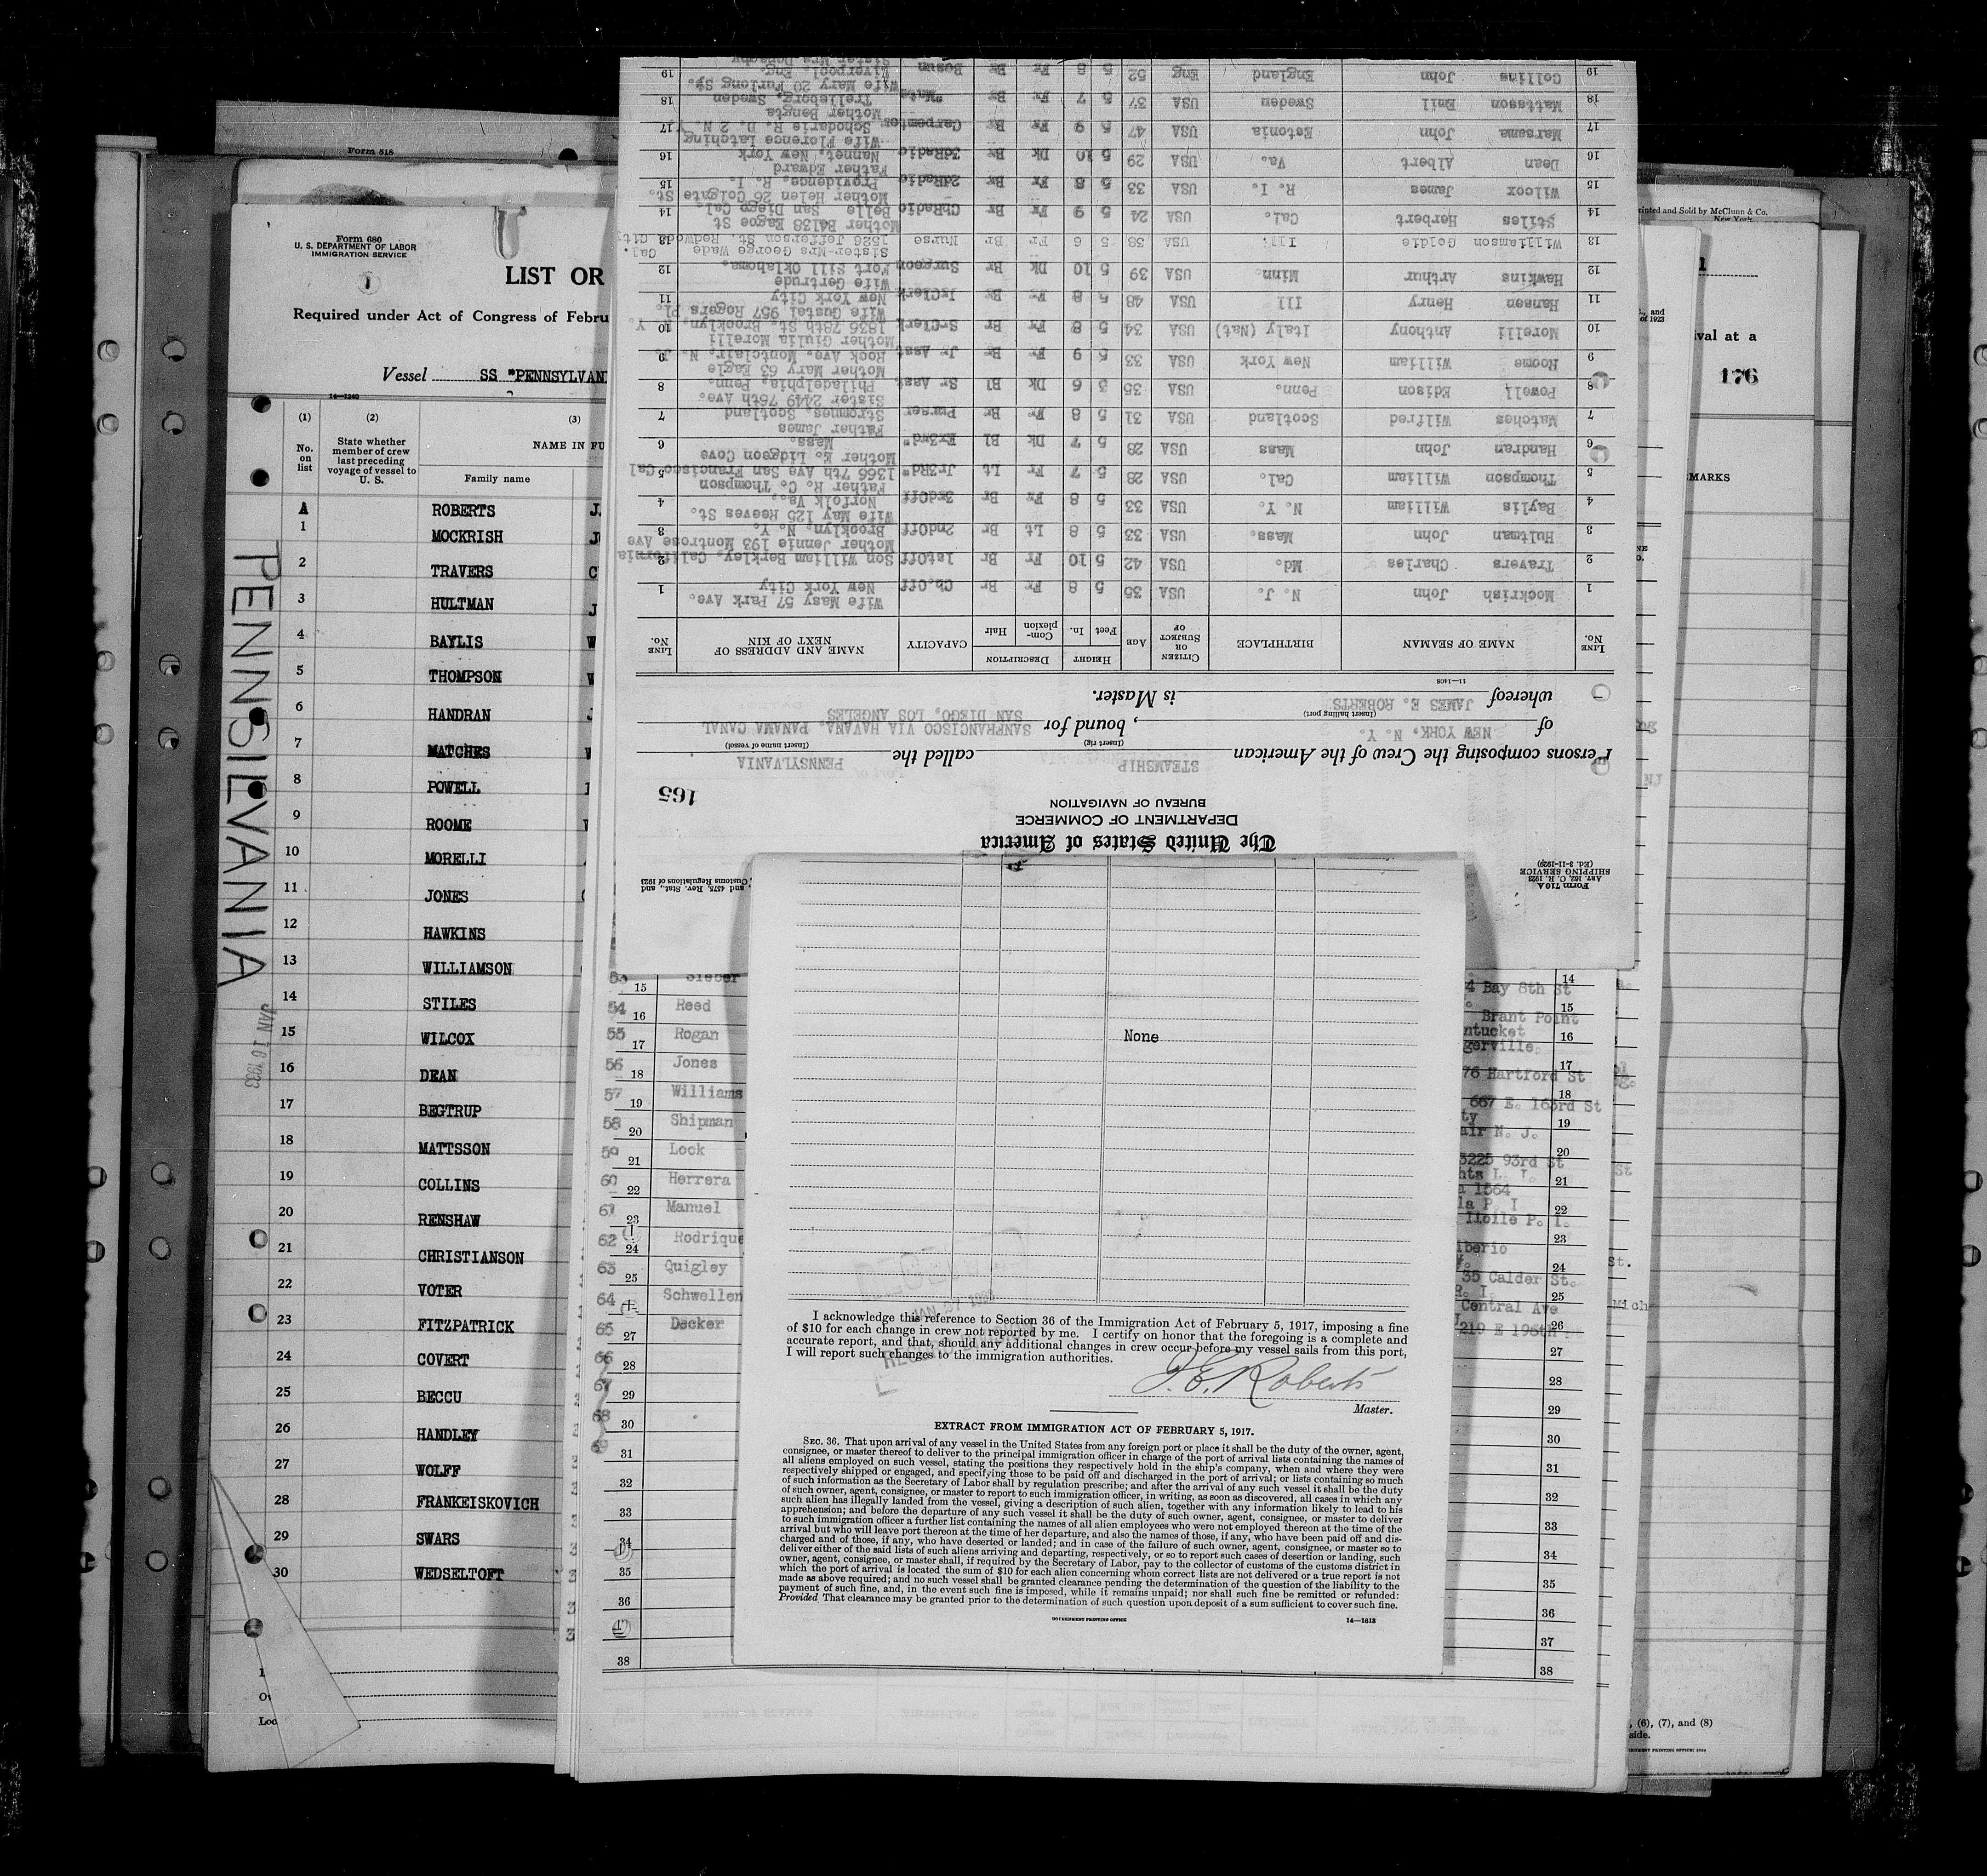 Form 518
Form 680
U. S. DEPARTMENT OF LABOR
IMMIGRATION SERVICE
LIST OR
Required under Act of Congress of Febru
Vessel SS "PENNSYLVAN
14—1240
(1) (2) (3)
No. on list
State whether member of crew last preceding voyage of vessel to U. S.
NAME IN FU
Family name
A ROBERTS J.
1 MOCKRISH J
2 TRAVERS C
3 HULTMAN J
4 BAYLIS W
5 THOMPSON W
6 HANDRAN J
7 MATCHES W
8 POWELL
9 ROOME W
10 MORELLI
11 JONES
12 HAWKINS
13 WILLIAMSON
14 STILES
15 WILCOX
16 DEAN
17 BEGTRUP
18 MATTSSON
19 COLLINS
20 RENSHAW
21 CHRISTIANSON
22 VOTER
23 FITZPATRICK
24 COVERT
25 BECCU
26 HANDLEY
27 WOLFF
28 FRANKEISKOVICH
29 SWARS
30 WEDSELTOFT
PENNSILVANIA
JAN 10 1933
Loc
Form 710A
ART. 162, C. R. 1923
SHIPPING SERVICE
(Ed. 3-11-1929)
, and 4575, Rev. Stat., and
Customs Regulations of 1923
The United States of America
DEPARTMENT OF COMMERCE
BUREAU OF NAVIGATION
165
Persons composing the Crew of the American STEAMSHIP called the PENNSYLVANIA
(Insert rig) (Insert name of vessel)
of NEW YORK, N. Y. , bound for SANFRANCISCO VIA HAVANA, PANAMA CANAL
(Insert hailing port) SAN DIEGO, LOS ANGELES
whereof JAMES E. ROBERTS is Master.
11—1408
LINE No. NAME OF SEAMAN BIRTHPLACE CITIZEN OR SUBJECT OF AGE HEIGHT Feet In. DESCRIPTION Complexion Hair CAPACITY NAME AND ADDRESS OF NEXT OF KIN LINE No.
1 Mockrish John N. J. USA 35 5 8 Fr Br Ch.Off Wife Masy 57 Park Ave. New York City 1
2 Travers Charles Md. USA 42 5 10 Fr Br 1stOff Son William Berkley, California 2
3 Hultman John Mass. USA 33 5 8 Lt Br 2ndOff Mother Jennie 193 Montrose Ave Brooklyn, N. Y. 3
4 Baylis William N. Y. USA 33 5 8 Fr Br 3rdOff Wife May 125 Reeves St. Norfolk Va., 4
5 Thompson William Cal. USA 28 5 7 Fr Lt Jr3Rd" Father R. C. Thompson 1366 7th Ave San Francisco Cal 5
6 Handran John Mass USA 28 5 7 Dk Bl Ex3rd" Mother E. Lidgeon Cove Mass. 6
7 Matches Wilfred Scotland USA 31 5 8 Fr Br Purser Father James Stromnes, Scotland 7
8 Powell Edison Penn. USA 35 3 6 Dk Bl Sr Asst Sister 2449 76th Ave. Philadelphia, Penn. 8
9 Roome William New York USA 33 5 9 Fr Br Jr Asst Mother Mary 63 Eagle Rock Ave. Montclair, N. J. 9
10 Morelli Anthony Italy (Nat) USA 34 5 8 Fr Br SrClerk Mother Giulia Morelli 1836 78th St. Brooklyn, N. Y. 10
11 Hansen Henry Ill USA 48 5 8 Fr Br JrClerk Wife Gustal 957 Rogers Pl. New York City 11
12 Hawkins Arthur Minn. USA 39 5 10 Dk Br Surgeon Wife Gertrude Fort Sill Oklahoma. 12
13 Williamson Goldie Ill. USA 38 5 6 Fr Br Nurse Sister-Mrs George Wade 1526 Jefferson St. Redwood City Cal. 13
14 Stiles Herbert Cal. USA 24 5 9 Fr Br ChRadio Mother B4138 Eagoe St Belle San Diego Cal. 14
15 Wilcox James R. I. USA 33 5 8 Fr Br 2dRadio Mother Helen 26 Colgate St. Providence, R. I. 15
16 Dean Albert Va. USA 29 5 10 Dk Br 3dRadio Father Edward Nannet, New York 16
17 Marsama John Estonia USA 47 5 9 Fr Br Carpenter Wife Florence Latching Schodarie R. D. 2 N. Y. 17
18 Mattsson Emil Sweden USA 37 5 7 Fr Br "Mate Mother Bengta Trelleborg, Sweden 18
19 Collins John England Eng 52 5 8 Fr Br Bosun Wife Mary 20 Furlong St. Liverpool, Eng. 19
53 15 Sleber
54 16 Reed
55 17 Rogan
56 18 Jones
57 19 Williams
58 20 Shipman
59 21 Lock
60 22 Herrera
61 23 Manuel
62 24 Rodrique
63 25 Quigley
64 Schwellen
65 27 Decker
66 28
67 29
68 30
69 31
32
33
34
35
36
38
None
I acknowledge this reference to Section 36 of the Immigration Act of February 5, 1917, imposing a fine
of $10 for each change in crew not reported by me. I certify on honor that the foregoing is a complete and
accurate report, and that, should any additional changes in crew occur before my vessel sails from this port,
I will report such changes to the immigration authorities.
J. E. Roberts
Master.
EXTRACT FROM IMMIGRATION ACT OF FEBRUARY 5, 1917.
SEC. 36. That upon arrival of any vessel in the United States from any foreign port or place it shall be the duty of the owner, agent,
consignee, or master thereof to deliver to the principal immigration officer in charge of the port of arrival lists containing the names of
all aliens employed on such vessel, stating the positions they respectively hold in the ship's company, when and where they were
respectively shipped or engaged, and specifying those to be paid off and discharged in the port of arrival; or lists containing so much
of such information as the Secretary of Labor shall by regulation prescribe; and after the arrival of any such vessel it shall be the duty
of such owner, agent, consignee, or master to report to such immigration officer, in writing, as soon as discovered, all cases in which any
such alien has illegally landed from the vessel, giving a description of such alien, together with any information likely to lead to his
apprehension; and before the departure of any such vessel it shall be the duty of such owner, agent, consignee, or master to deliver
to such immigration officer a further list containing the names of all alien employees who were not employed thereon at the time of the
arrival but who will leave port thereon at the time of her departure, and also the names of those, if any, who have been paid off and dis-
charged and of those, if any, who have deserted or landed; and in case of the failure of such owner, agent, consignee, or master so to
deliver either of the said lists of such aliens arriving and departing, respectively, or so to report such cases of desertion or landing, such
owner, agent, consignee, or master shall, if required by the Secretary of Labor, pay to the collector of customs of the customs district in
which the port of arrival is located the sum of $10 for each alien concerning whom correct lists are not delivered or a true report is not
made as above required; and no such vessel shall be granted clearance pending the determination of the question of the liability to the
payment of such fine, and, in the event such fine is imposed, while it remains unpaid; nor shall such fine be remitted or refunded:
Provided That clearance may be granted prior to the determination of such question upon deposit of a sum sufficient to cover such fine.
GOVERNMENT PRINTING OFFICE 14—1613
4 Bay 8th St 14
15
Brant Point
ntucket 16
gerville.
17
76 Hartford St
18
667 E. 163rd St
ty 19
air N. J.
20
3225 93rd St
hts L. I. 21
1564
la P. I 22
Iloilo P. I.
23
iberio
24
35 Calder St.
R. I. 25
Central Ave
26
219 E 196th
27
28
29
30
31
32
33
34
35
36
37
38
St
St.
Mich
Printed and Sold by McClunn & Co.
New York
., and
of 1923
val at a
176
MARKS
, (6), (7), and (8)
side.